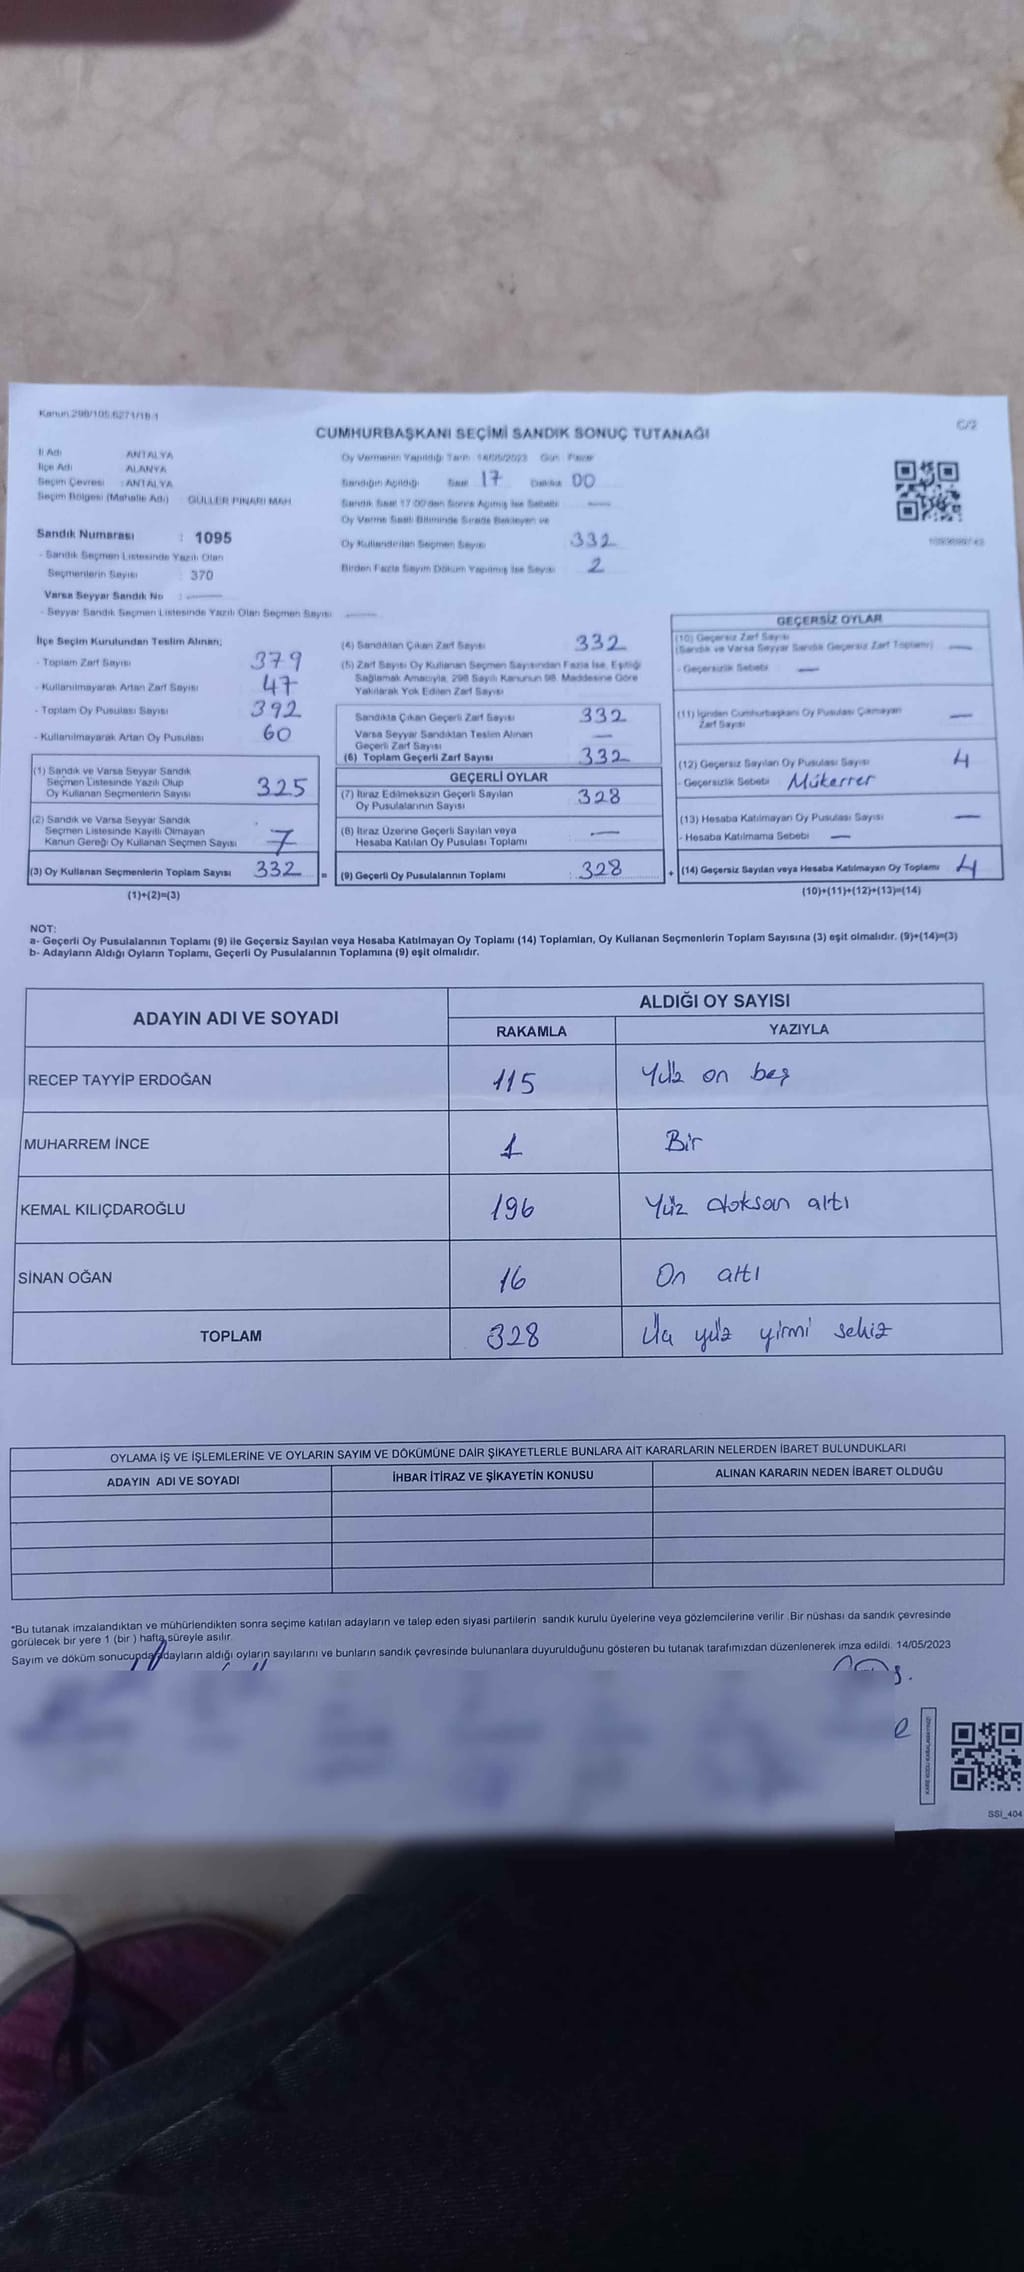 Kanun:298/105,6271/18-1
C/2
CUMHURBAŞKANI SEÇİMİ SANDIK SONUÇ TUTANAĞI
İl Adı : ANTALYA
İlçe Adı : ALANYA
Seçim Çevresi : ANTALYA
Seçim Bölgesi (Mahalle Adı) GÜLLER PINARI MAH
Sandık Numarası : 1095
- Sandık Seçmen Listesinde Yazılı Olan
Seçmenlerin Sayısı : 370
Varsa Seyyar Sandık No : —
- Seyyar Sandık Seçmen Listesinde Yazılı Olan Seçmen Sayısı —
Oy Vermenin Yapıldığı Tarih : 14/05/2023 Gün : Pazar
Sandığın Açıldığı Saat 17 Dakika 00
Sandık Saat 17:00'den Sonra Açılmış İse Sebebi —
Oy Verme Saati Bitiminde Sırada Bekleyen ve
Oy Kullandırılan Seçmen Sayısı 332
Birden Fazla Sayım Döküm Yapılmış İse Sayısı 2
İlçe Seçim Kurulundan Teslim Alınan;
- Toplam Zarf Sayısı 379
- Kullanılmayarak Artan Zarf Sayısı 47
- Toplam Oy Pusulası Sayısı 392
- Kullanılmayarak Artan Oy Pusulası 60
(1) Sandık ve Varsa Seyyar Sandık
Seçmen Listesinde Yazılı Olup
Oy Kullanan Seçmenlerin Sayısı 325
(2) Sandık ve Varsa Seyyar Sandık
Seçmen Listesinde Kayıtlı Olmayan
Kanun Gereği Oy Kullanan Seçmen Sayısı 7
(3) Oy Kullanan Seçmenlerin Toplam Sayısı 332 =
(1)+(2)=(3)
(4) Sandıktan Çıkan Zarf Sayısı 332
(5) Zarf Sayısı Oy Kullanan Seçmen Sayısından Fazla İse, Eşitliği
Sağlamak Amacıyla, 298 Sayılı Kanunun 98. Maddesine Göre
Yakılarak Yok Edilen Zarf Sayısı
Sandıkta Çıkan Geçerli Zarf Sayısı 332
Varsa Seyyar Sandıktan Teslim Alınan
Geçerli Zarf Sayısı —
(6) Toplam Geçerli Zarf Sayısı 332
GEÇERLİ OYLAR
(7) İtiraz Edilmeksizin Geçerli Sayılan
Oy Pusulalarının Sayısı 328
(8) İtiraz Üzerine Geçerli Sayılan veya
Hesaba Katılan Oy Pusulası Toplamı —
(9) Geçerli Oy Pusulalarının Toplamı : 328 +
GEÇERSİZ OYLAR
(10) Geçersiz Zarf Sayısı
(Sandık ve Varsa Seyyar Sandık Geçersiz Zarf Toplamı) —
- Geçersizlik Sebebi —
(11) İçinden Cumhurbaşkanı Oy Pusulası Çıkmayan
Zarf Sayısı —
(12) Geçersiz Sayılan Oy Pusulası Sayısı 4
- Geçersizlik Sebebi Mükerrer
(13) Hesaba Katılmayan Oy Pusulası Sayısı —
- Hesaba Katılmama Sebebi —
(14) Geçersiz Sayılan veya Hesaba Katılmayan Oy Toplamı 4
(10)+(11)+(12)+(13)=(14)
NOT:
a- Geçerli Oy Pusulalarının Toplamı (9) ile Geçersiz Sayılan veya Hesaba Katılmayan Oy Toplamı (14) Toplamları, Oy Kullanan Seçmenlerin Toplam Sayısına (3) eşit olmalıdır. (9)+(14)=(3)
b- Adayların Aldığı Oyların Toplamı, Geçerli Oy Pusulalarının Toplamına (9) eşit olmalıdır.
ADAYIN ADI VE SOYADI
ALDIĞI OY SAYISI
RAKAMLA YAZIYLA
RECEP TAYYİP ERDOĞAN 115 Yüz on beş
MUHARREM İNCE 1 Bir
KEMAL KILIÇDAROĞLU 196 Yüz doksan altı
SİNAN OĞAN 16 On altı
TOPLAM 328 Üç yüz yirmi sekiz
OYLAMA İŞ VE İŞLEMLERİNE VE OYLARIN SAYIM VE DÖKÜMÜNE DAİR ŞİKAYETLERLE BUNLARA AİT KARARLARIN NELERDEN İBARET BULUNDUKLARI
ADAYIN ADI VE SOYADI İHBAR İTİRAZ VE ŞİKAYETİN KONUSU ALINAN KARARIN NEDEN İBARET OLDUĞU
*Bu tutanak imzalandıktan ve mühürlendikten sonra seçime katılan adayların ve talep eden siyasi partilerin sandık kurulu üyelerine veya gözlemcilerine verilir. Bir nüshası da sandık çevresinde
görülecek bir yere 1 (bir ) hafta süreyle asılır.
Sayım ve döküm sonucunda adayların aldığı oyların sayılarını ve bunların sandık çevresinde bulunanlara duyurulduğunu gösteren bu tutanak tarafımızdan düzenlenerek imza edildi. 14/05/2023
SSİ_404